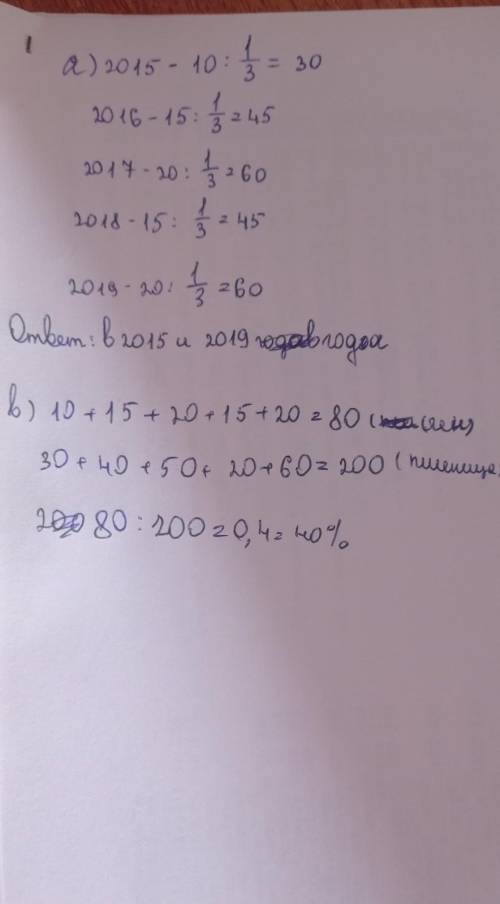 1
а) 2015 - 10 : 1/3 = 30
2016 - 15 : 1/3 = 45
2017 - 20 : 1/3 = 60
2018 - 15 : 1/3 = 45
2019 - 20 : 1/3 = 60
Ответ: в 2015 и 2019 годах
в) 10 + 15 + 20 + 15 + 20 = 80 (
30 + 40 + 50 + 20 + 60 = 200 (пшеница)
80 : 200 = 0,4 = 40%